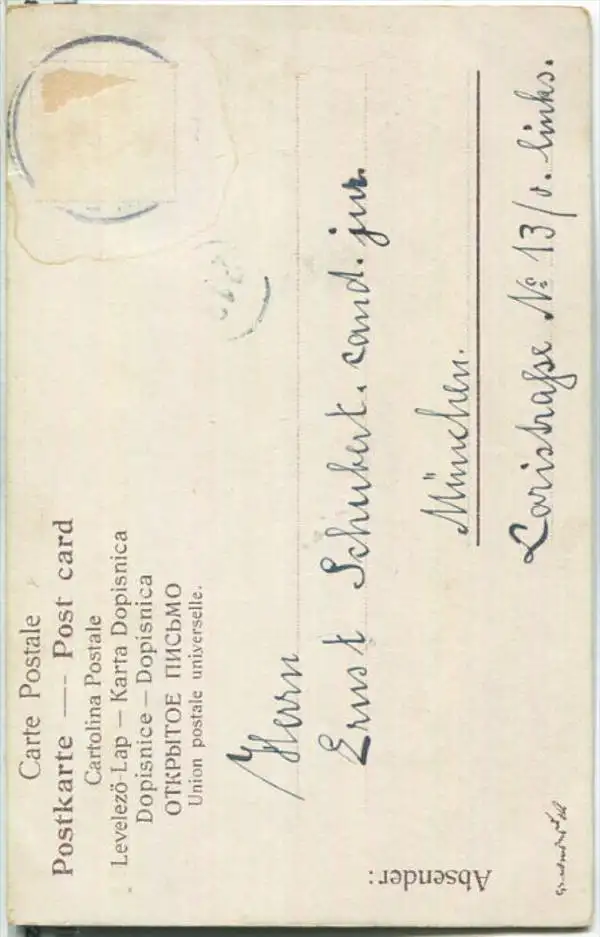 Carte Postale
Postkarte — Post card
Cartolina Postale
Levelező-Lap — Karta Dopisnica
Dopisnice — Dopisnica
ОТКРЫТОЕ ПИСЬМО
Union postale universelle.
Herrn
Ernst Schubert. cand. jur.
München.
Larisstraße № 13/0. links.
Absender: